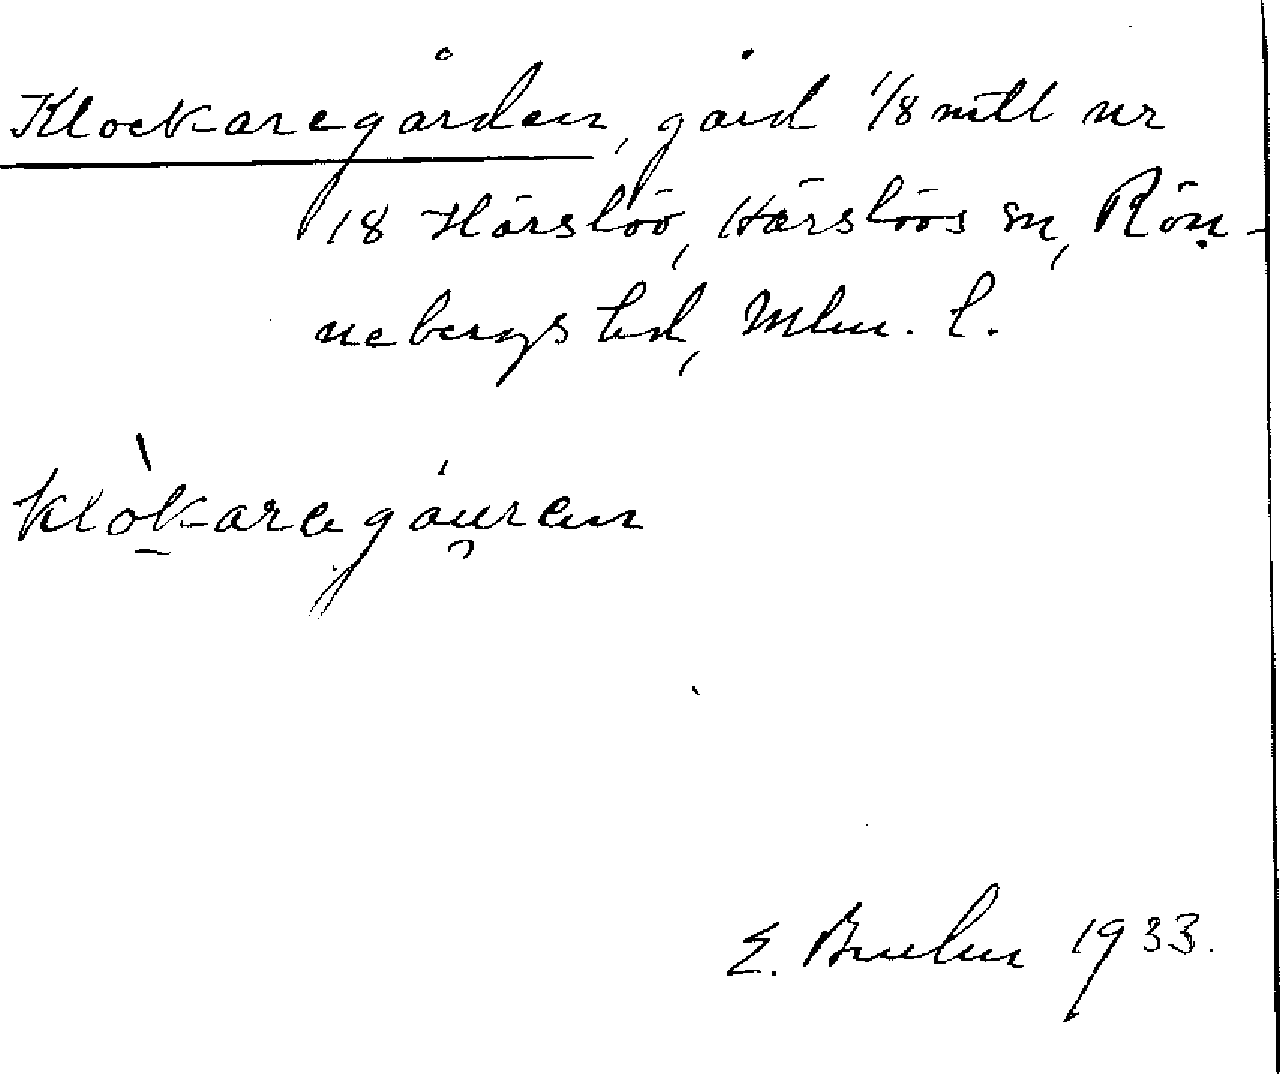 Klockaregården, gård 1/8 mtl nr
18 Härslöv, Härslövs sn, Rön-
nebergs hd, Mlm. l.
klòkaregáuren
E. Bruhn 1933.